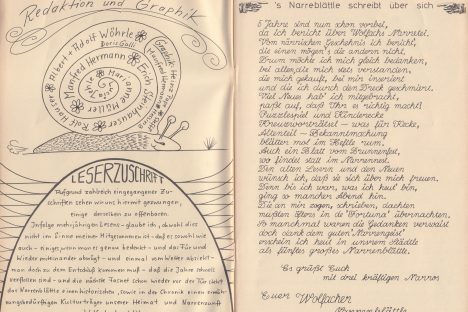 Redaktion und Graphik
Albert + Adolf Wöhrle
Doris Galli
Manfred Hermann
Marianne Müller
Erich
Rolf
Graphik: Heinz
LESERZUSCHRIFT
Aufgrund zahlreich eingegangener Zu-
schriften sehen wir uns hiermit gezwungen,
einige derselben zu offenbaren.
Infolge mehrjährigen Lesens - glaube ich, obwohl dies
nicht im Sinne meiner Mitgenossen ist - daß es sowohl wie
auch - einiges wenn man es genau bedenkt - und das Für und
Wider miteinander abwägt - und einmal vom Wetter absieht -
man doch zu dem Entschluß kommen muß - daß die Jahre schnell
verfließen sind - und die nächste Fasnet schon wieder vor der Tür steht
das Narrenblättle einen historischen, sowie in der Chronik einen
würdigen Kulturträger unserer Heimat und Narrenzunft
's Narreblättle schreibt über sich
5 Jahre sind nun schon vorbei,
da ich bericht über Wolfachs Narretei.
Vom närrischen Geschehnis ich bericht,
die einen mögen's die anderen nicht.
Drum möchte ich mich gleich bedanken,
bei allen, die mich stets verstanden,
die mich gekauft, bei mir inseriert
und die ich durch den Dreck geschmiert.
Viel Neues hab' ich mitgebracht,
paßt auf, daß Ihr es richtig macht!
Puzzlespiel und Kinderecke
Kreuzworträtsel - was für Kecke,
Altenteil - Bekanntmachung
blätten mol im Heftle rum,
Auch ein Blatt vom Brunnenfest,
wo findet statt im Narrennest.
Den alten Lesern und den Neuen
wünsch ich, daß sie sich über mich freuen.
Denn bis ich war, was ich heut bin,
ging so mancher Abend hin.
Die an mir zogen, schrieben, dachten
mußten öfters in de "Fortuna" übernachten.
So manchmal waren die Gedanken verwaist
doch dank dem guten "Narrengeist"
erschein ich heut in unsrem Städtle
als fünftes großes Narrenblättle.
Es grüßt Euch
mit drei kräftigen Narros
Euer Wolfacher
Narrenblättle